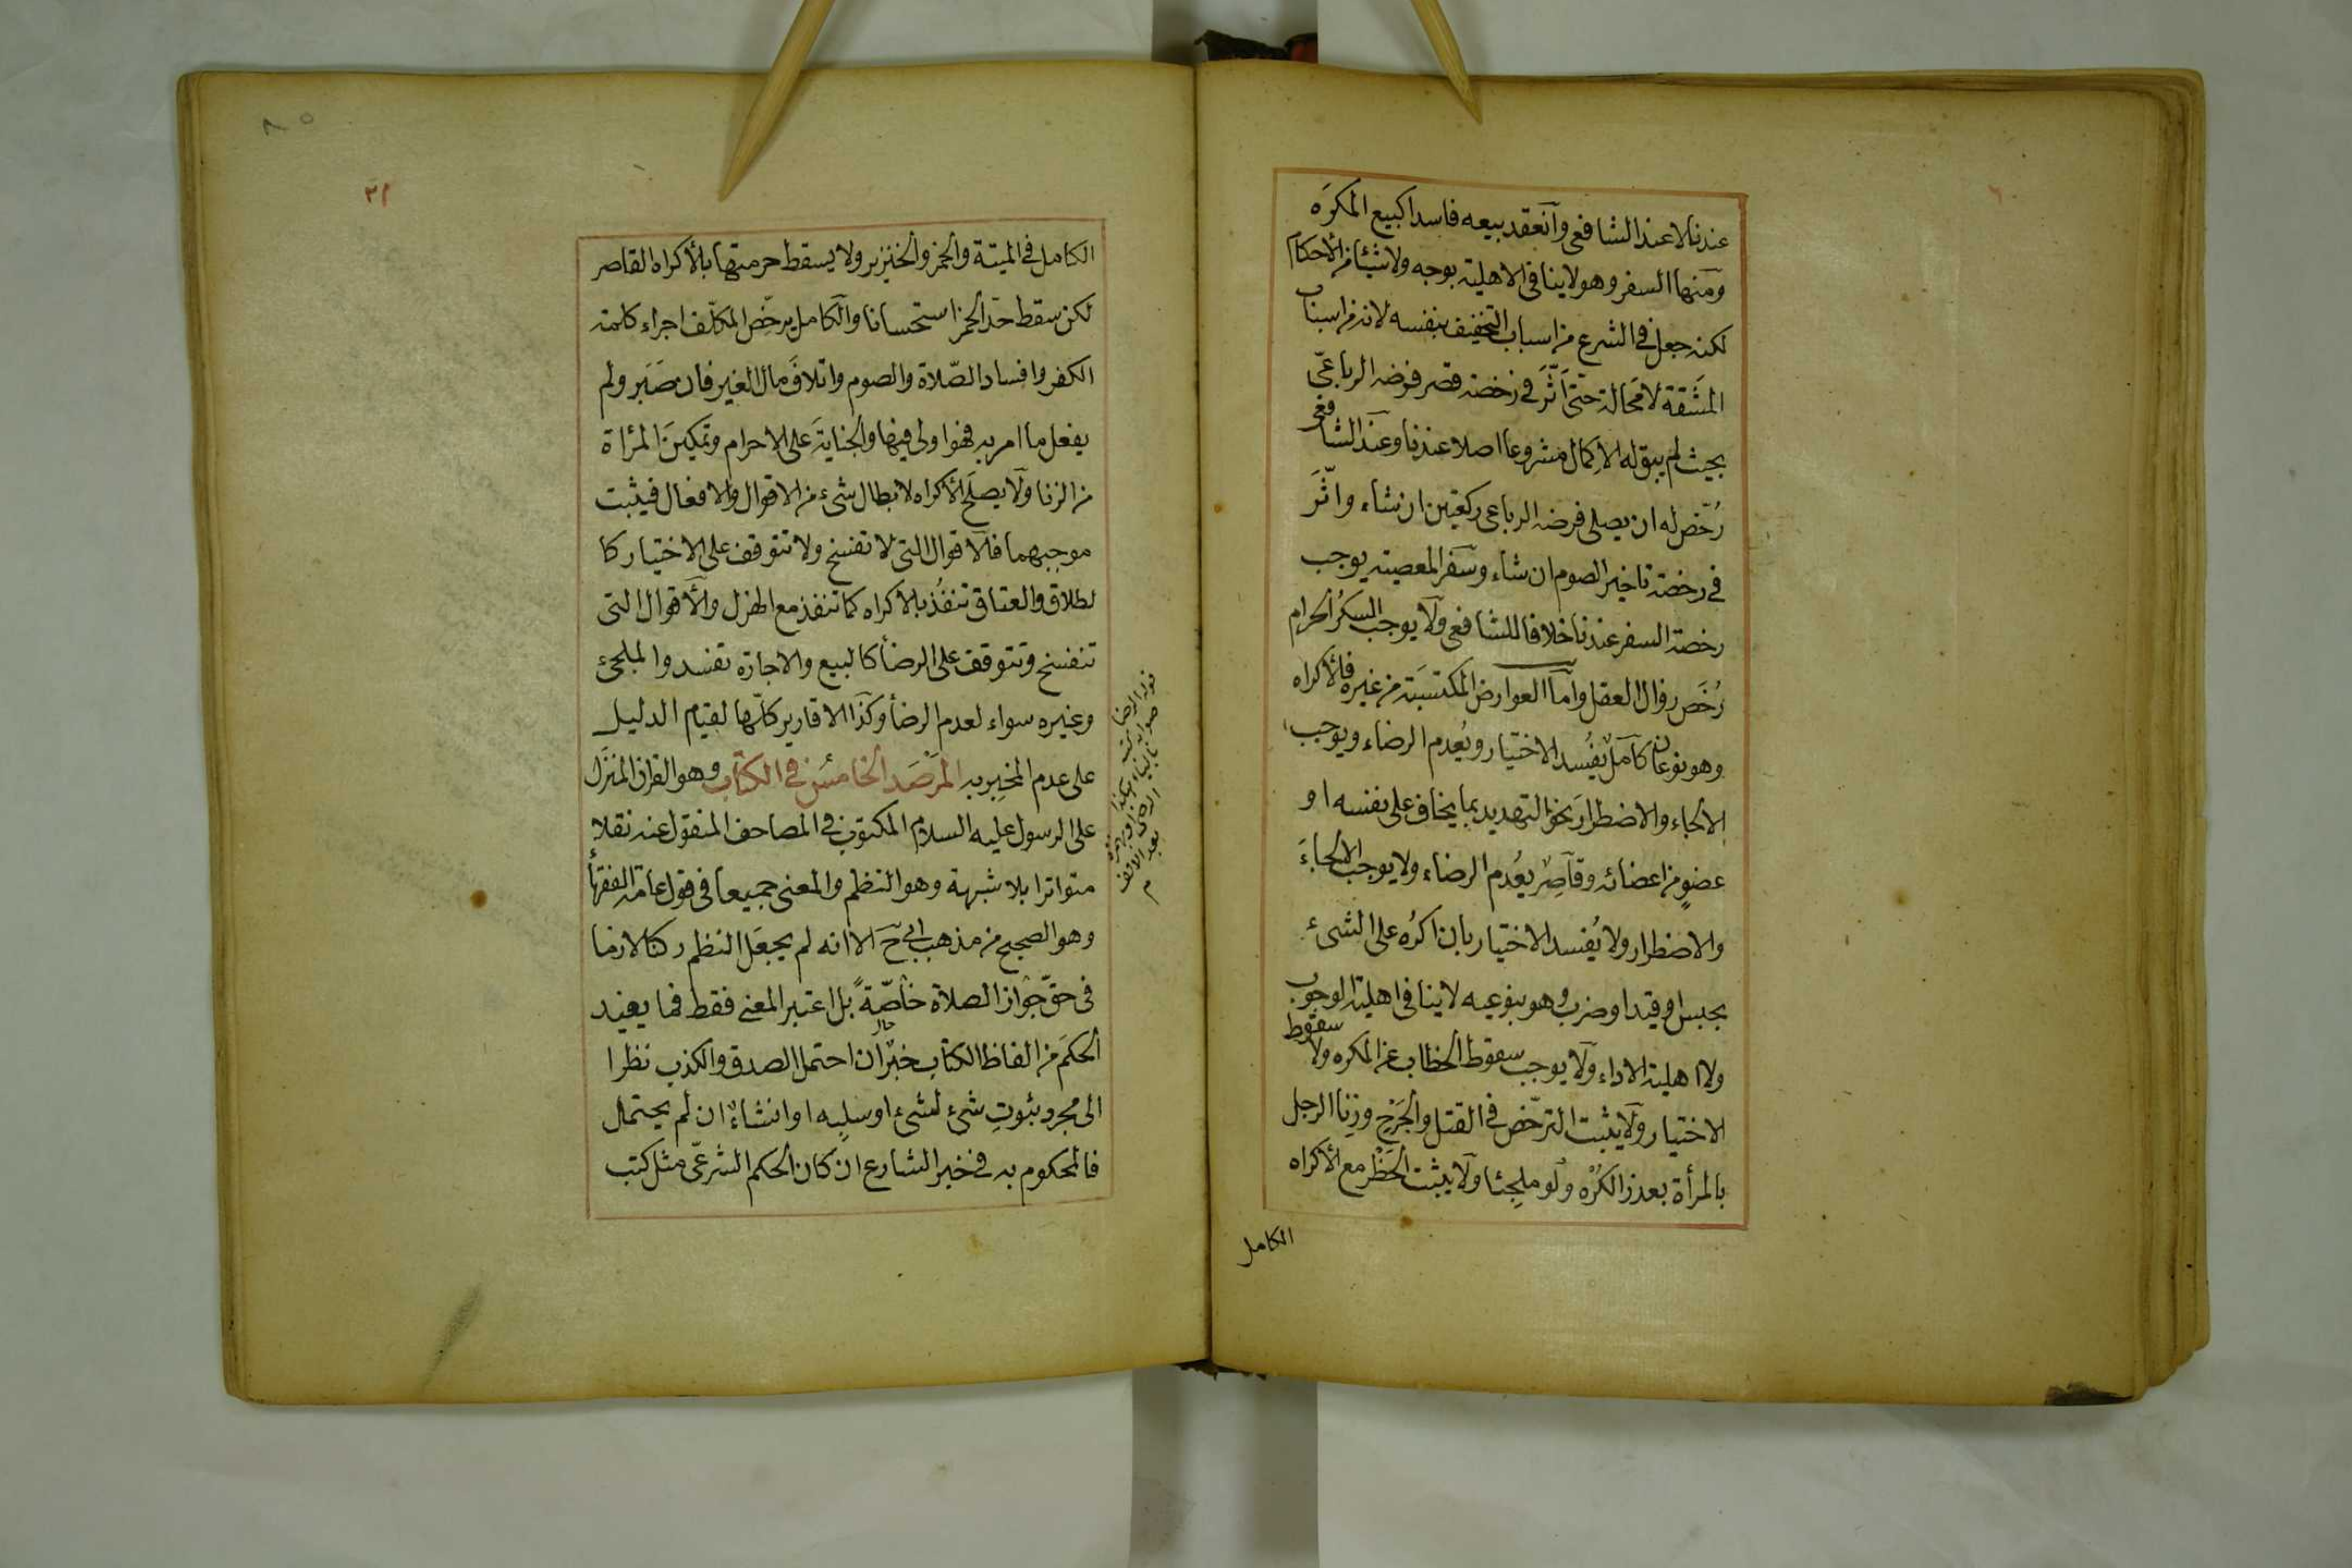 عندنا لا عند الشافعى وانعقد بيعه فاسدا كبيع المكرَه
ومنها السفر وهو لا ينافى الاهلية بوجه ولا شيئا من الأحكام
لكنه جعل فى الشرع من اسباب التخفيف بنفسه لانه من اسباب
المشقة لا محالة حتى اثّر فى رخصة قصر فرضه الرباعىّ
بحيث لم يبق له الاكمال مشروعا اصلا عندنا وعند الشافعى
رُخّص له ان يصلى فرضه الرباعى ركعتين ان شاء واثّر
فى رخصة تاخير الصوم ان شاء وسفر المعصية يوجب
رخصة السفر عندنا خلافا للشافعى ولا يوجب السكرُ الحرام
رُخَص زوال العقل وامّا العوارض المكتسبة من غيره فالأكراه
وهو نوعان كامل يُفسد الاختيار ويُعدم الرضاء ويوجب
الالجاء والاضطرار نحو التهديد بما يخاف على نفسه او
عضوٍ من اعضائه وقاصر يُعدم الرضاء ولا يوجب الالجاءَ
والاضطرار ولا يُفسد الاختيار بان اكرُه على الشىء
بحبس او قيد او ضرب وهو بنوعيه لا ينافى اهلية الوجوب
ولا اهلية الاداء ولا يوجب سقوط الخطاب عن المكره ولا سقوط
الاختيار ولا يثبت الترخّص فى القتل والجَرْحِ وزنا الرجل
بالمرأة بعذر الكُرْه ولو ملجئا ولا يثبت الحَظْر مع الأكراه
الكامل
٣١
الكامل فى الميتة والخمر والخنزير ولا يسقط حرمتها بالأكراه القاصر
لكن سقط حدّ الخمر استحسانا والكامل يرخّص المكلّف اجراء كلمة
الكفر وافساد الصّلاة والصوم واتلافَ مال الغير فان صَبَر ولم
يفعل ما امر به فهو اولى فيها والجنايةَ على الاحرام وتمكينَ المرأة
من الزنا ولا يصلح الأكراه لابطال شىء من الاقوال والافعال فيثبت
موجبهما فالاقوال التى لا تفسخ ولا تتوقف على الاختيار كا
لطلاق والعتاق تنفُذ بالاكراه كما تنفذ مع الهزل والاقوال التى
تنفسخ وتتوقف على الرضأ كالبيع والاجازة تفسد والملجئ
وغيره سواء لعدم الرضأ وكذا الاقارير كلّها لقيام الدليل
على عدم المخبِر به المَرْصَد الخامس فى الكتاب وهو القران المنزَل
على الرسول عليه السلام المكتوب فى المصاحف المنقول عنه نقلا
متواترا بلا شبهة وهو النظم والمعنى جميعا فى قول عامّة الفقهأ
وهو الصحيح من مذهب ابى حَ الا انه لم يجعَل النظم ركنا لازما
فى حقّ جواز الصلاة خاصّةً بل اعتبر المعنى فقط فما يفيد
الحكمَ من الفاظ الكتاب خبرٌ ان احتمل الصدق والكذب نظرا
الى مجرد ثبوتِ شئ لشئ او سلبِه او انشاءٌ ان لم يحتمل
فالمحكوم به فى خبر الشارع ان كان الحكم الشرعىّ مثل كتب